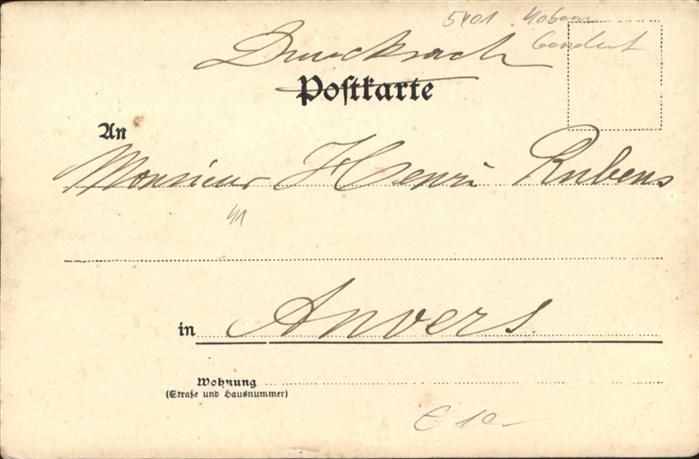 5401
Drucksach
Postkarte
An
Monsieur Henri Rubens
in Anvers
Wohnung
(Straße und Hausnummer)
€ 10-